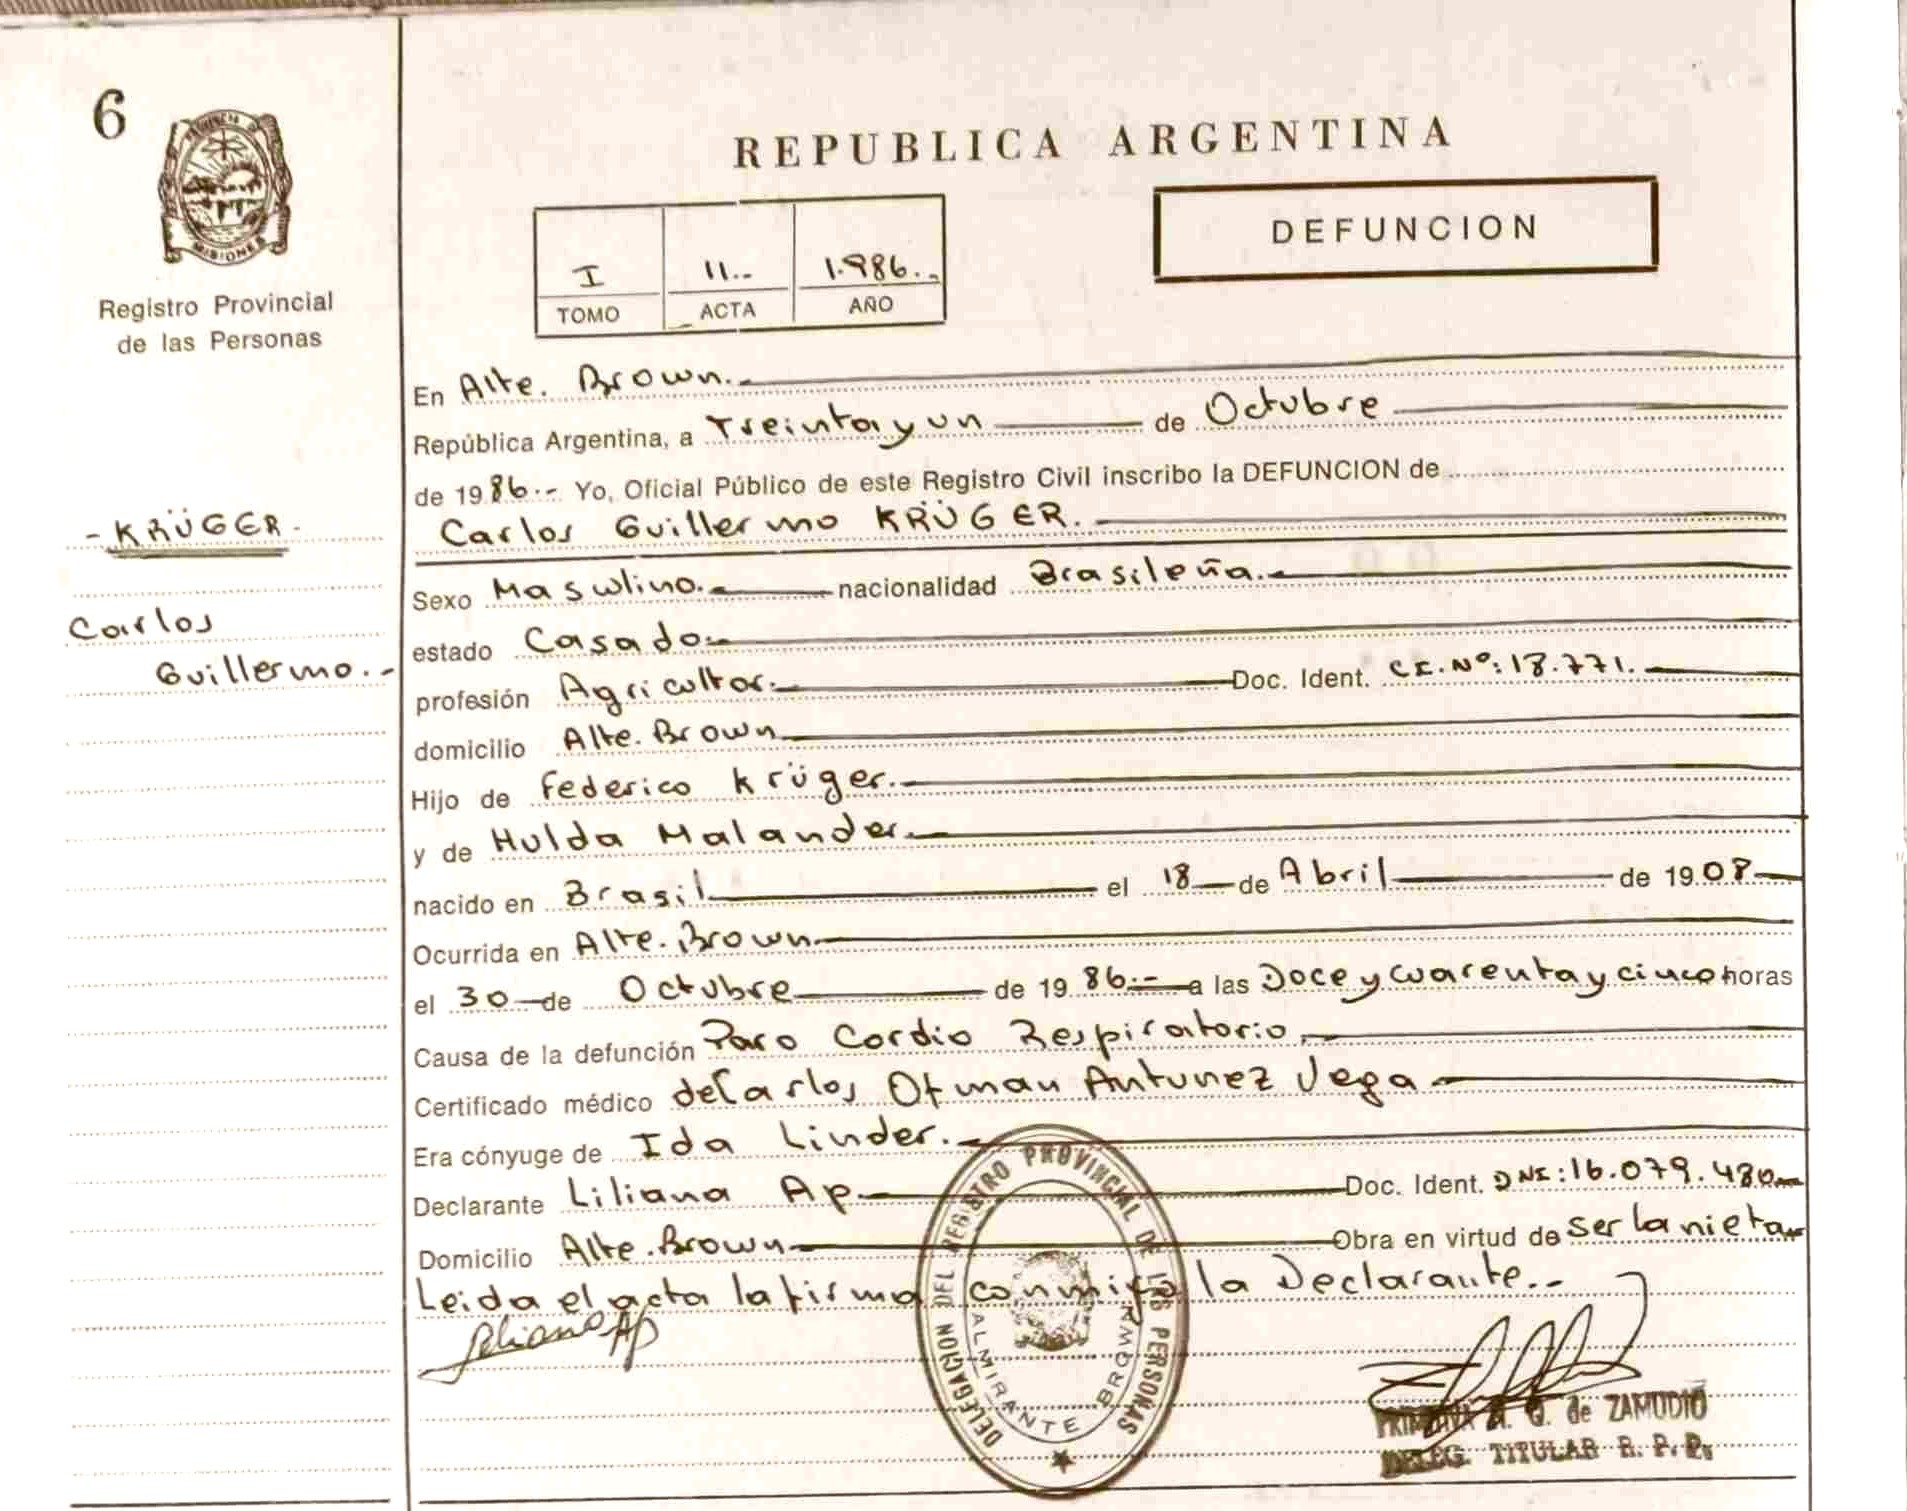 6
PROVINCIA D
MISIONES
Registro Provincial
de las Personas
REPUBLICA ARGENTINA
DEFUNCION
I 11.- 1.986.-
TOMO ACTA AÑO
En Alte. Brown.
República Argentina, a Treinta y un de Octubre
de 1986.- Yo, Oficial Público de este Registro Civil inscribo la DEFUNCION de
- KRÜGER.
Carlos
Guillermo.-
Carlos Guillermo KRÜGER.
Sexo Masculino. nacionalidad Brasileña.
estado Casado.-
profesión Agricultor. Doc. Ident. CE.Nº:18.771.
domicilio Alte. Brown
Hijo de Federico Krüger.
y de Hulda Malander.
nacido en Brasil el 18 de Abril de 1908
Ocurrida en Alte. Brown
el 30 de Octubre de 1986.- a las Doce y cuarenta y cinco horas
Causa de la defunción Paro Cardio Respiratorio
Certificado médico de Carlos Otman Antunez Vega
Era cónyuge de Ida Linder.
Declarante Liliana Ap Doc. Ident. DNI:16.079.480
Domicilio Alte. Brown Obra en virtud de ser la nieta
Leida el acta la firma conmigo la Declarante.-
Liliana Ap
DELEGACION DEL REGISTRO PROVINCIAL DE LAS PERSONAS
ALMIRANTE BROWN
de ZAMUDIO
DELEG. TITULAR R. P. P.